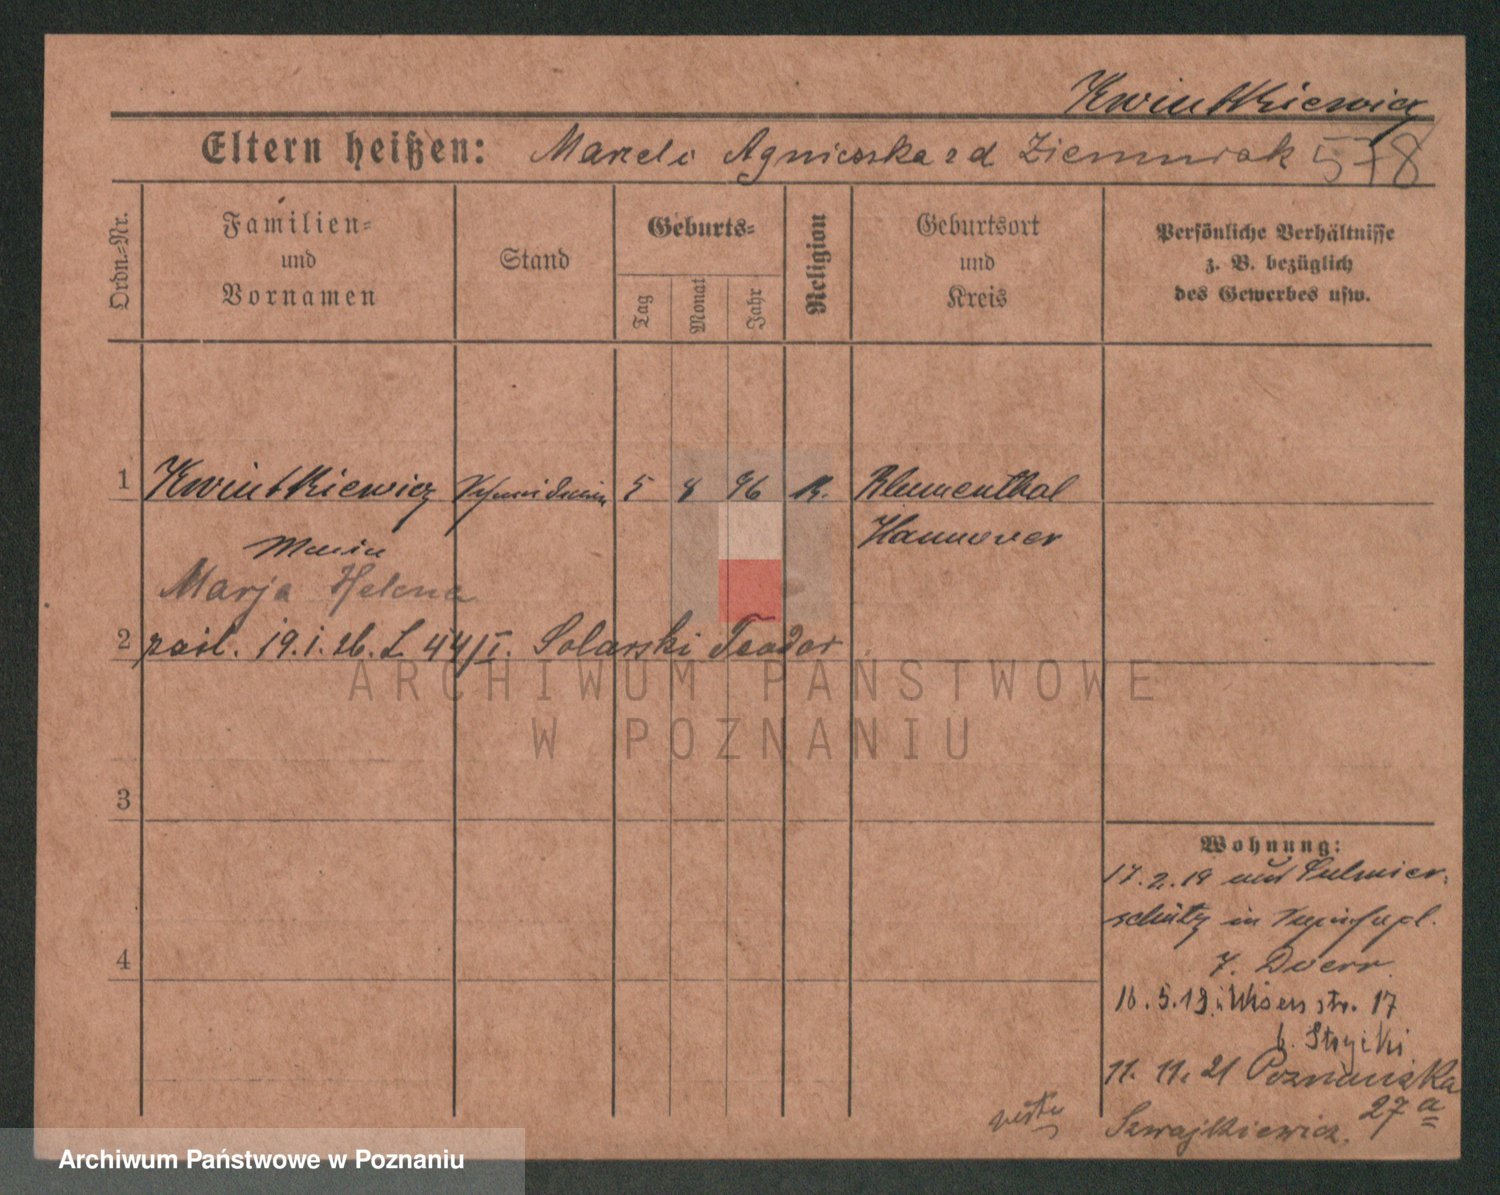 Kwintkiewicz
Eltern heißen: Marceli Agnieszka zd Ziemniak 578
Ordn.=Nr.
Familien=
und
Vornamen
Stand
Geburts=
Tag
Monat
Jahr
Religion
Geburtsort
und
Kreis
Persönliche Verhältnisse
z. B. bezüglich
des Gewerbes usw.
1 Kwintkiewicz Schneiderin 5 8 96 K. Blumenthal
Hannover
Maria
Marja Helena
2 zaśl. 19.1.26. L 44/I. Solarski Teodor
ARCHIWUM PAŃSTWOWE
W POZNANIU
3
4
Wohnung:
17.2.19 aus Sulmier-
schütz in
7. Doerr
16.5.19. str. 17
b. Stryicki
11. 11. 21 Poznańska
27 a
Szwajkiewicz.
Archiwum Państwowe w Poznaniu